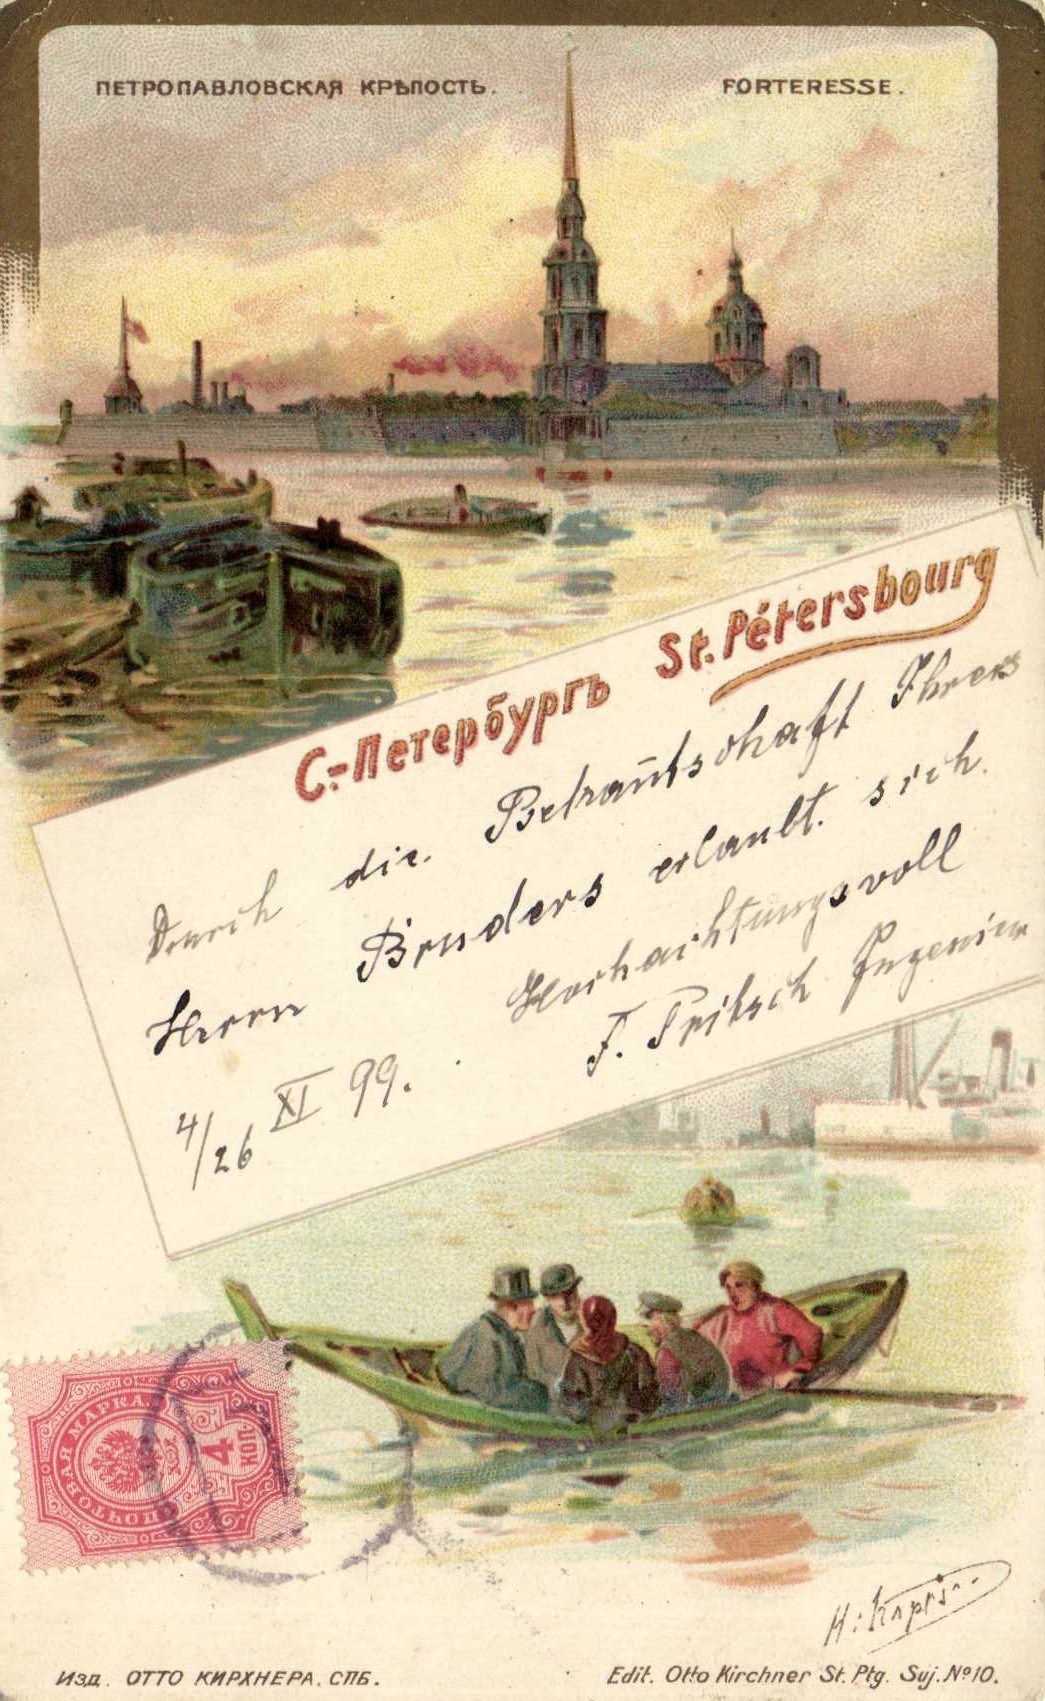 ПЕТРОПАВЛОВСКАЯ КРѢПОСТЬ.
FORTERESSE.
С.-Петербургъ St. Pétersbourg
Durch die Bekanntschaft Ihres
Herrn Bruders erlaubt sich
Hochachtungsvoll
4/26 XI 99.
F. Fritsch Ingenieur
ПОЧТОВАЯ МАРКА.
4 КОП.
Изд. ОТТО КИРХНЕРА. СПБ.
Edit. Otto Kirchner St. Ptg. Suj. № 10.